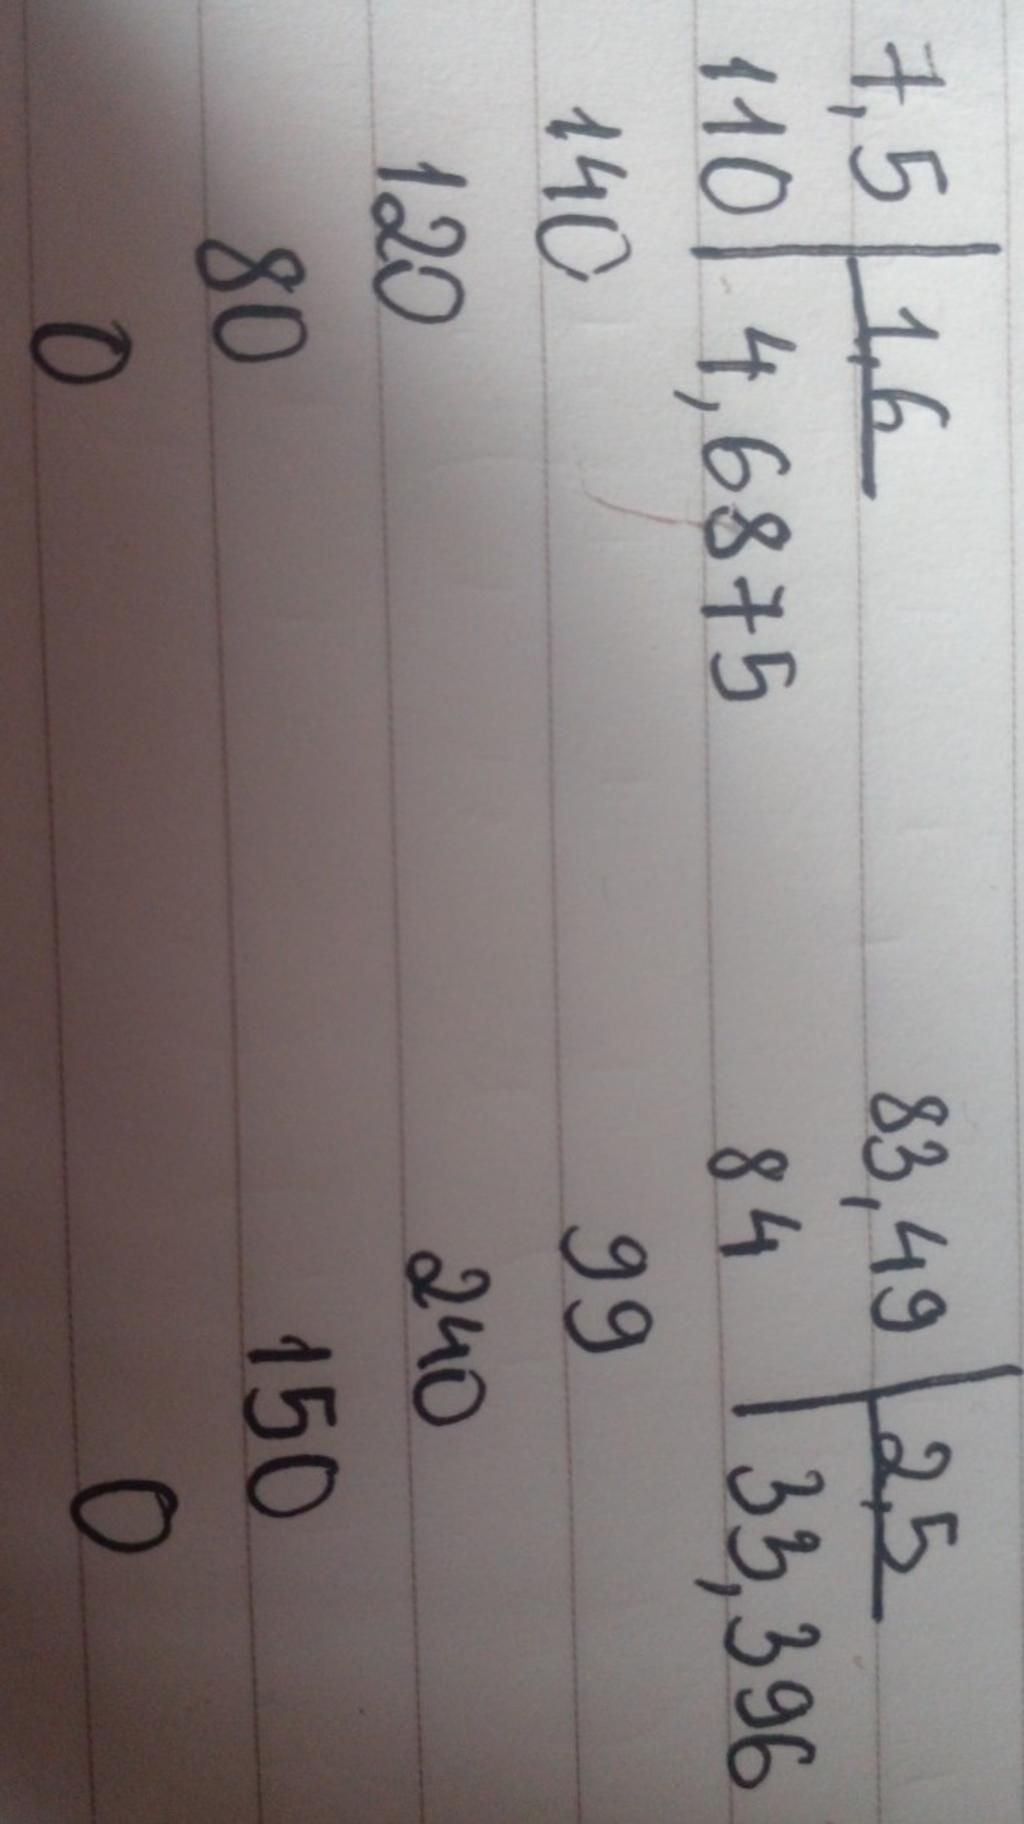 7,5 1,6
110 4,6875
140
120
80
0
83,49 2,5
84 33,396
99
240
150
0